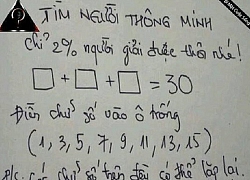 TÌM NGƯỜI THÔNG MINH
Chỉ 2% người giải được thôi nhé!
□ + □ + □ = 30
Điền chữ số vào ô trống
(1, 3, 5, 7, 9, 11, 13, 15)
các chữ số trên đều có thể lặp lại.